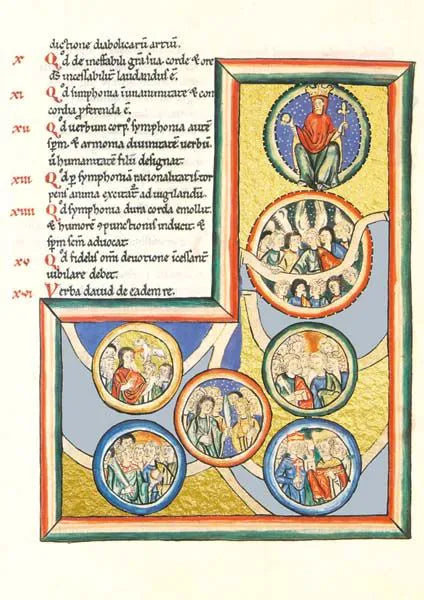 dictione diabolicarū artiū.
x Qd de ineffabili grā sua corde & ore
ds incessabilit laudandus ē.
xi Qd symphonia in unanimitate & con
cordia pferenda ē.
xii Qd verbum corp symphonia autē
spm & armonia divinitatē verbū
ū humanitatē filii designat.
xiii Qd p symphoniā racionalitatis tor
pens anima excitat ad vigilandū.
xiiii Qd symphonia dura corda emollit
& humorē 9punctionis inducit &
spm scm advocat.
xv Qd fidelis omī devotione icessant
iubilare debet.
xvi Verba david de eadem re.